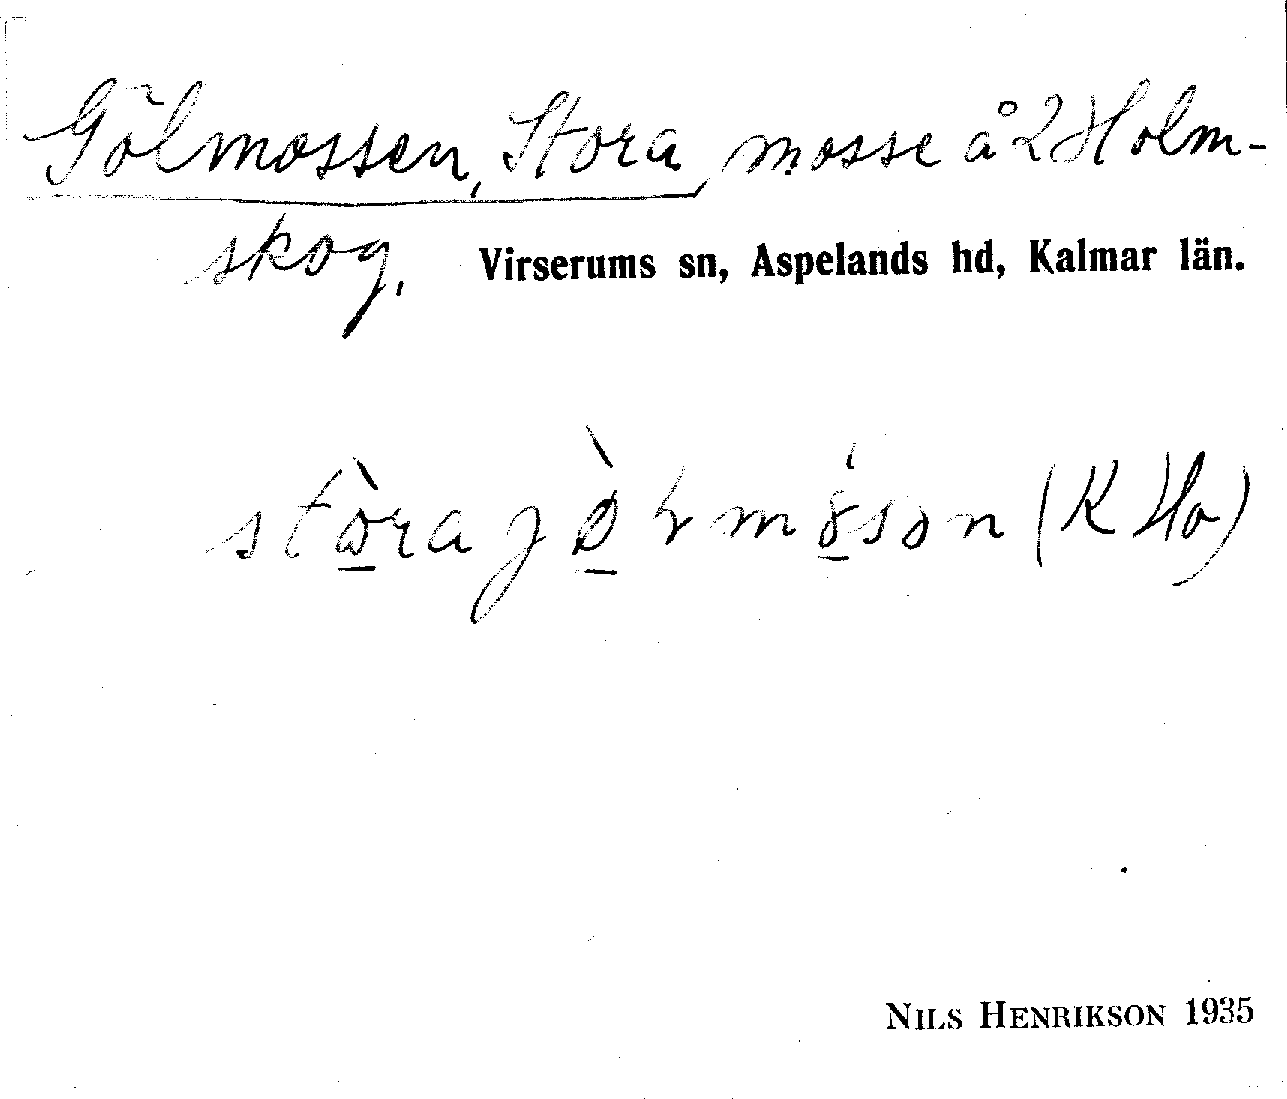 Gölmossen, Stora, mosse å 2 Holm-
skog. Virserums sn, Aspelands hd, Kalmar län.
(K Ho)
NILS HENRIKSON 1935